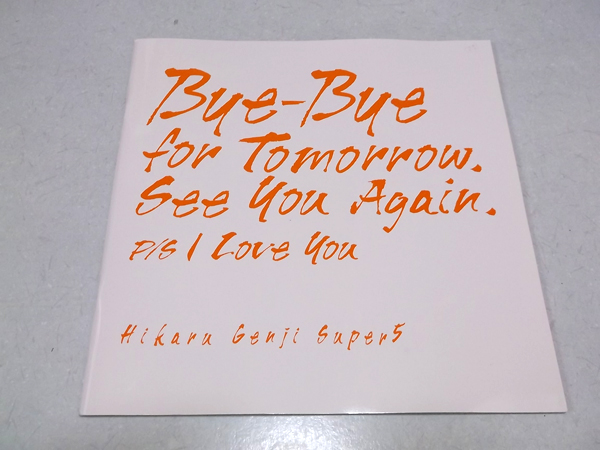 Bye-Bye
for Tomorrow.
See You Again.
P/S I Love You
Hikaru Genji Super5